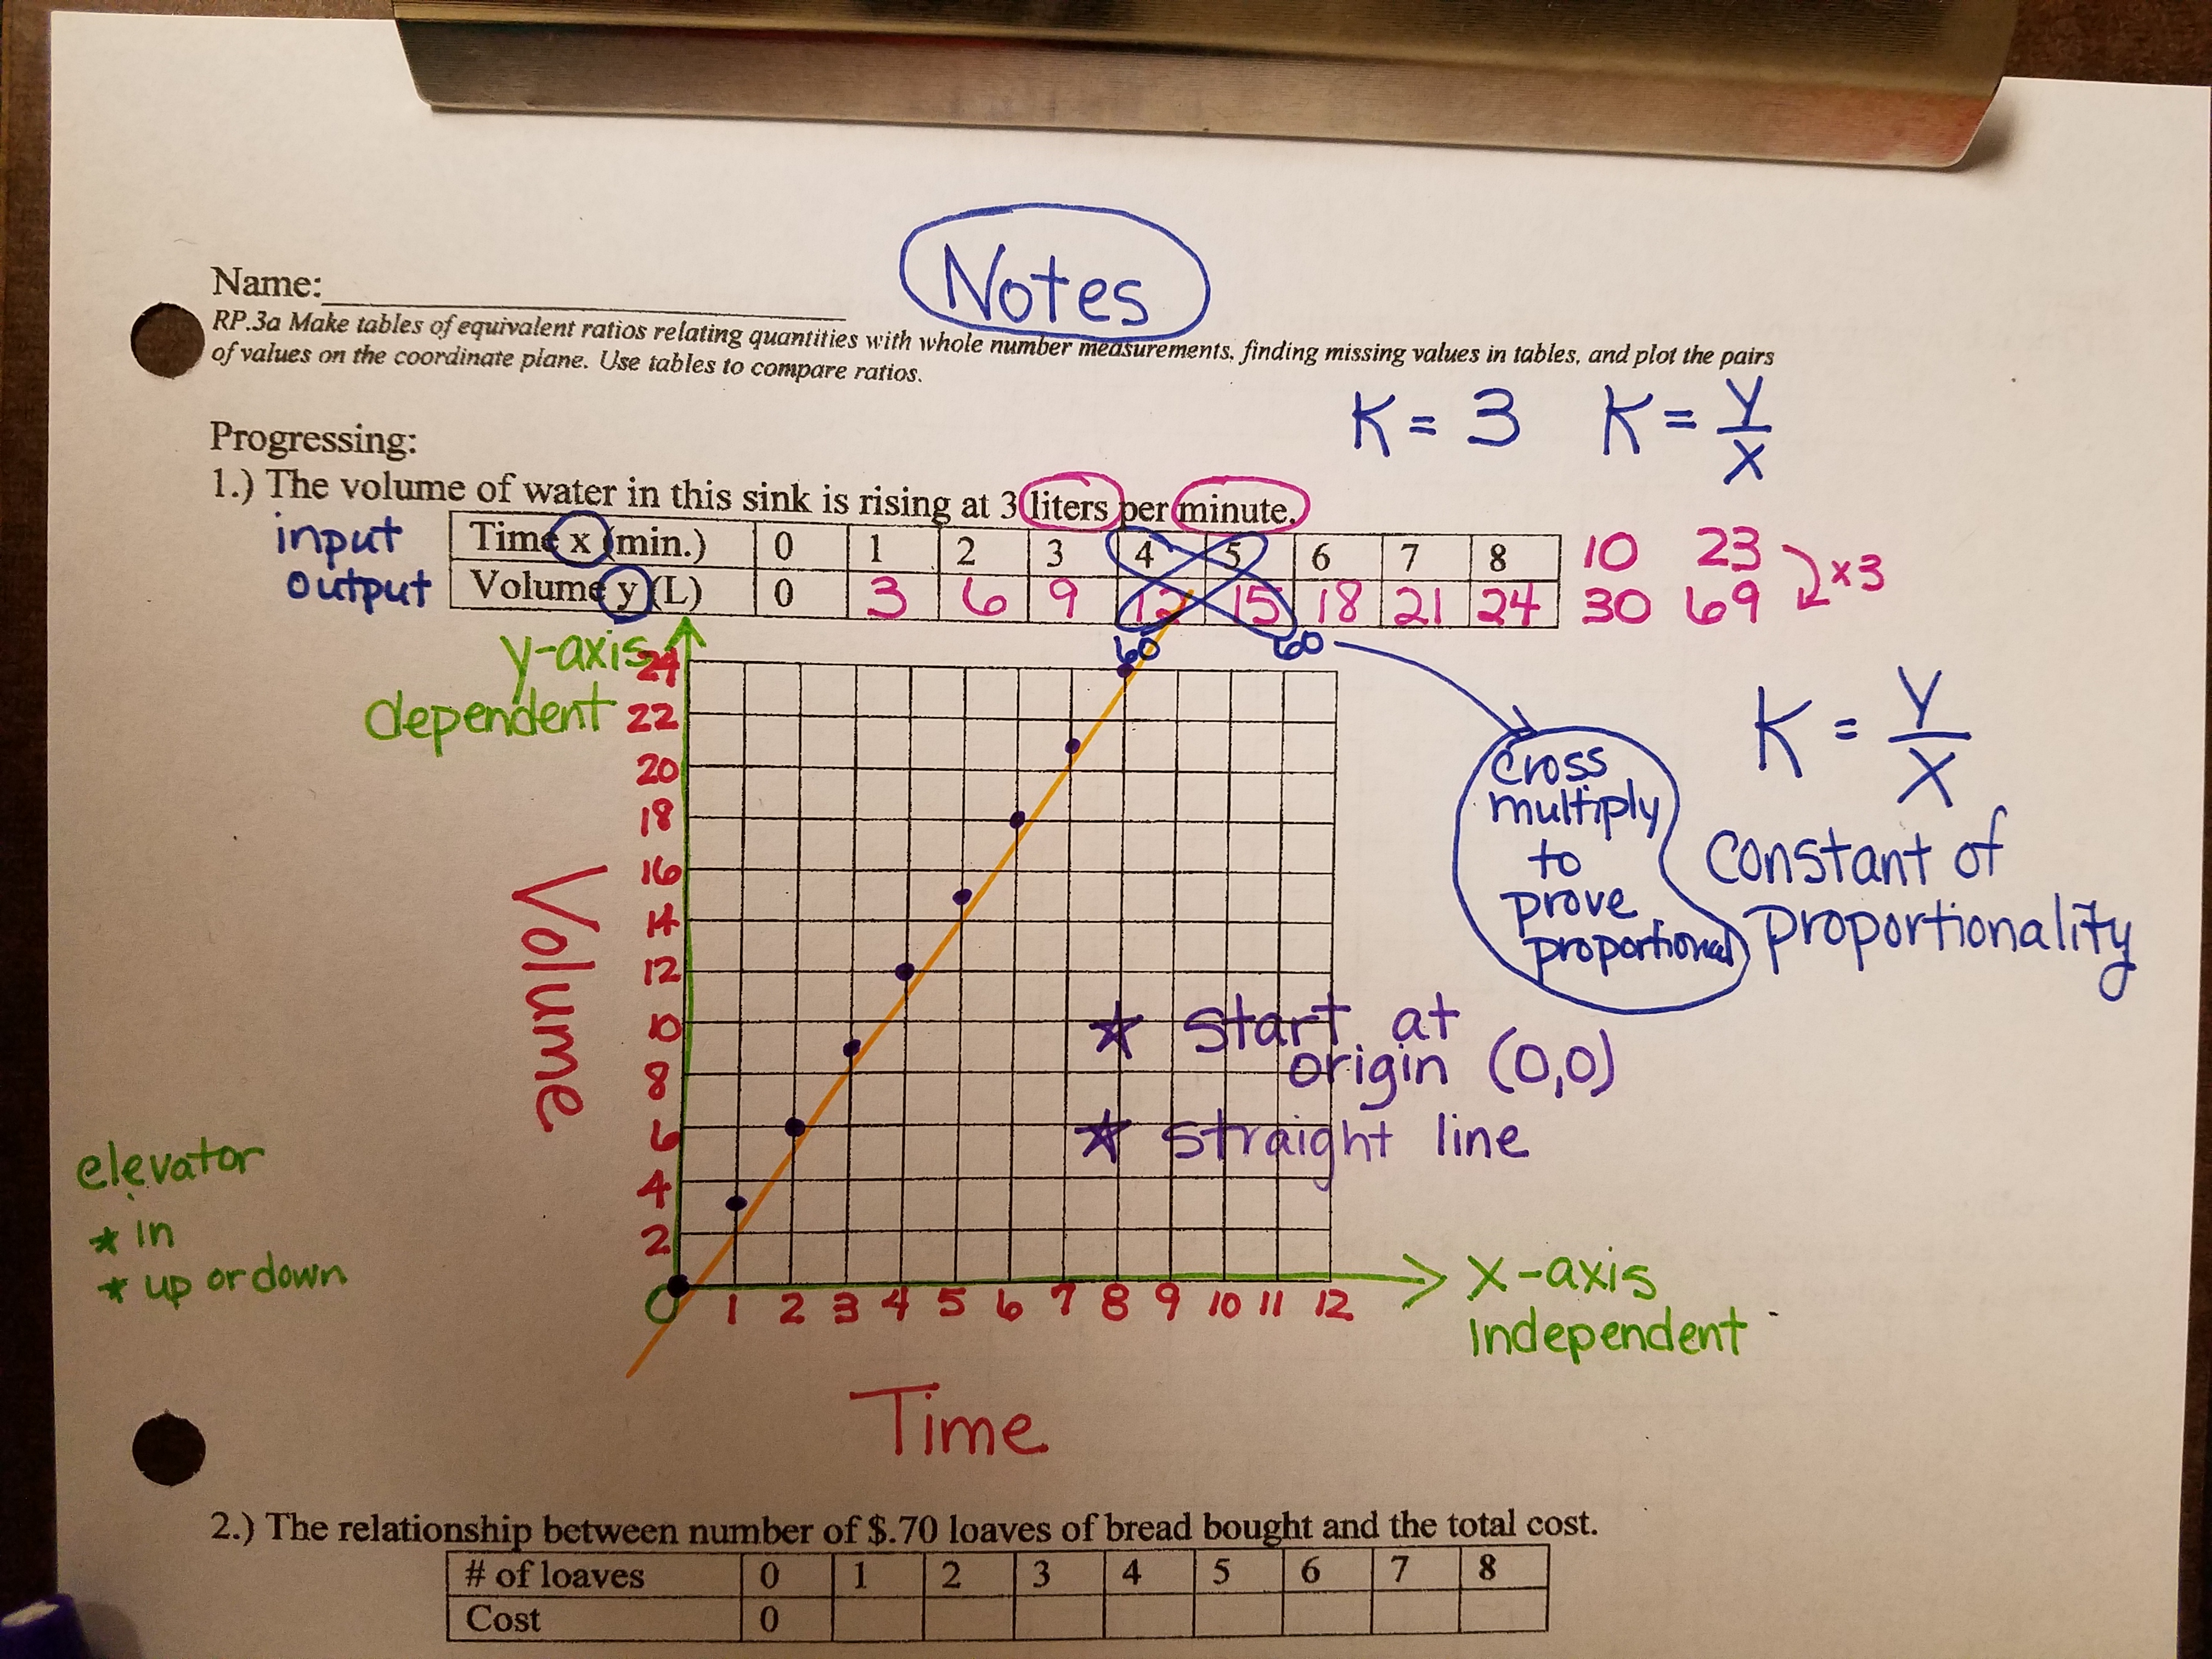 Notes
Name:
RP.3a Make tables of equivalent ratios relating quantities with whole number measurements, finding missing values in tables, and plot the pairs
of values on the coordinate plane. Use tables to compare ratios.
K = 3 K = Y/X
Progressing:
1.) The volume of water in this sink is rising at 3 liters per minute.
input Time x (min.) 0 1 2 3 4 5 6 7 8 10 23
output Volume y (L) 0 3 6 9 12 15 18 21 24 30 69
x3
60 60
y-axis
dependent
24
22
20
18
16
14
12
10
8
6
4
2
0 1 2 3 4 5 6 7 8 9 10 11 12
Volume
Time
cross
multiply
to
prove
proportional
K = Y/X
Constant of
Proportionality
★ start at
origin (0,0)
★ straight line
elevator
* in
* up or down
x-axis
independent
2.) The relationship between number of $.70 loaves of bread bought and the total cost.
# of loaves 0 1 2 3 4 5 6 7 8
Cost 0